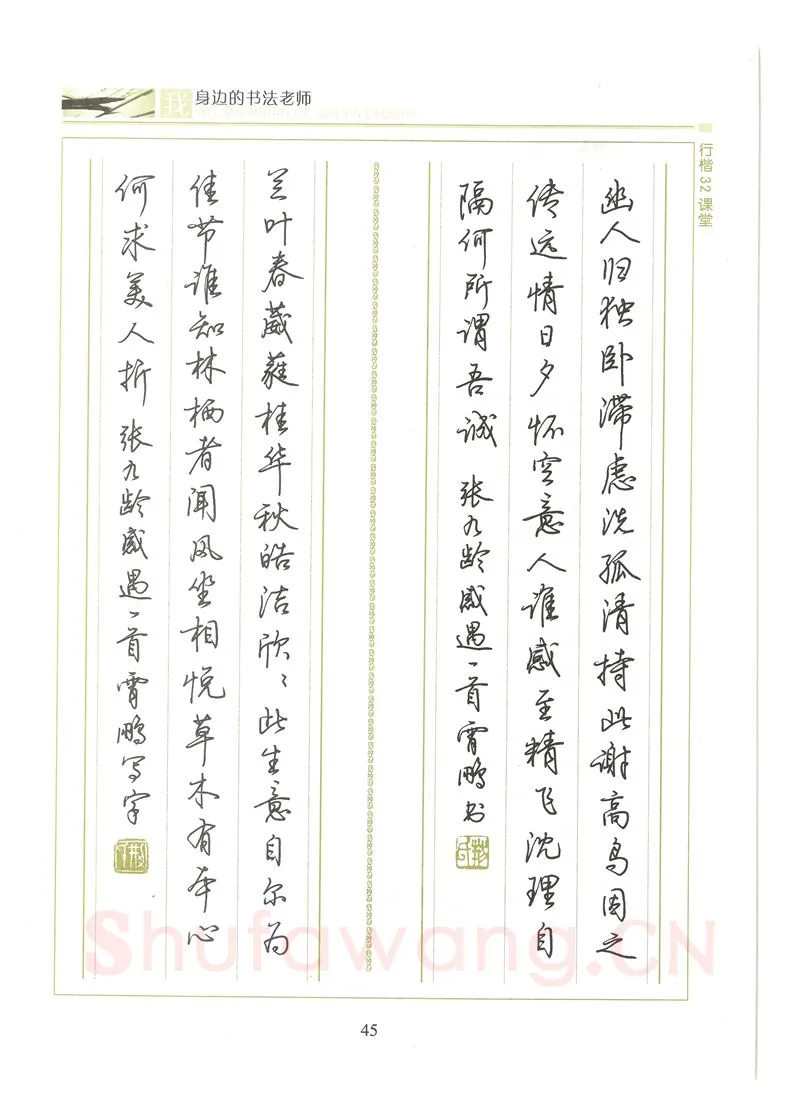 我身边的书法老师
行楷32课堂
幽人归独卧滞虑洗孤清持此谢高鸟因之
传远情日夕怀空意人谁感至精飞沈理自
隔何所谓吾诚 张九龄感遇一首霄鹏书
兰叶春葳蕤桂华秋皓洁欣〻此生意自尔为
佳节谁知林栖者闻风坐相悦草木有本心
何求美人折 张九龄感遇一首霄鹏写字
Shufawang.CN
45